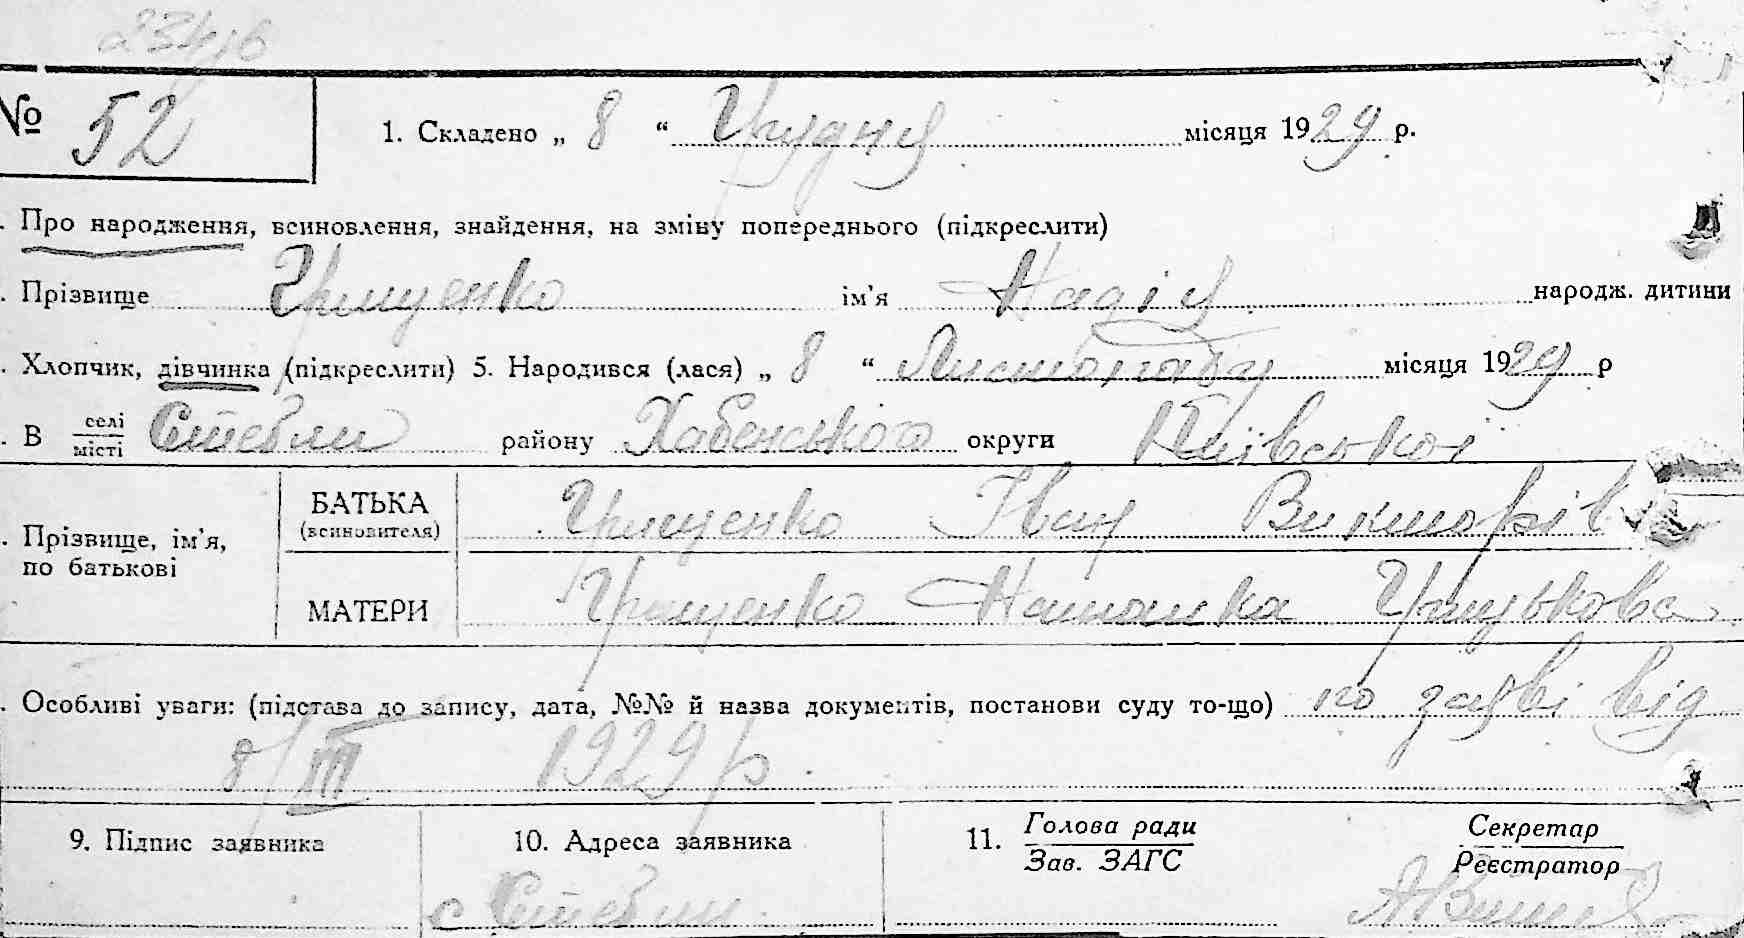 № 52 1. Складено „ 8 “ Грудня місяця 1929 р.
. Про народження, всиновлення, знайдення, на зміну попереднього (підкреслити)
. Прізвище Грищенко ім’я Надія народж. дитини
. Хлопчик, дівчинка (підкреслити) 5. Народився (лася) „ 8 “ Листопаду місяця 1929 р
. В селі Стебли району Хабенського округи Київської
місті
БАТЬКА Грищенко Іван Викторів
(всиновителя)
. Прізвище, ім’я,
по батькові
МАТЕРИ Грищенко Наталка Грицькова
. Особливі уваги: (підстава до запису, дата, №№ й назва документів, постанови суду то-що) по заяві від
8/III 1929 р.
9. Підпис заявника 10. Адреса заявника 11. Голова ради Секретар
Зав. ЗАГС Реєстратор
с Стебли